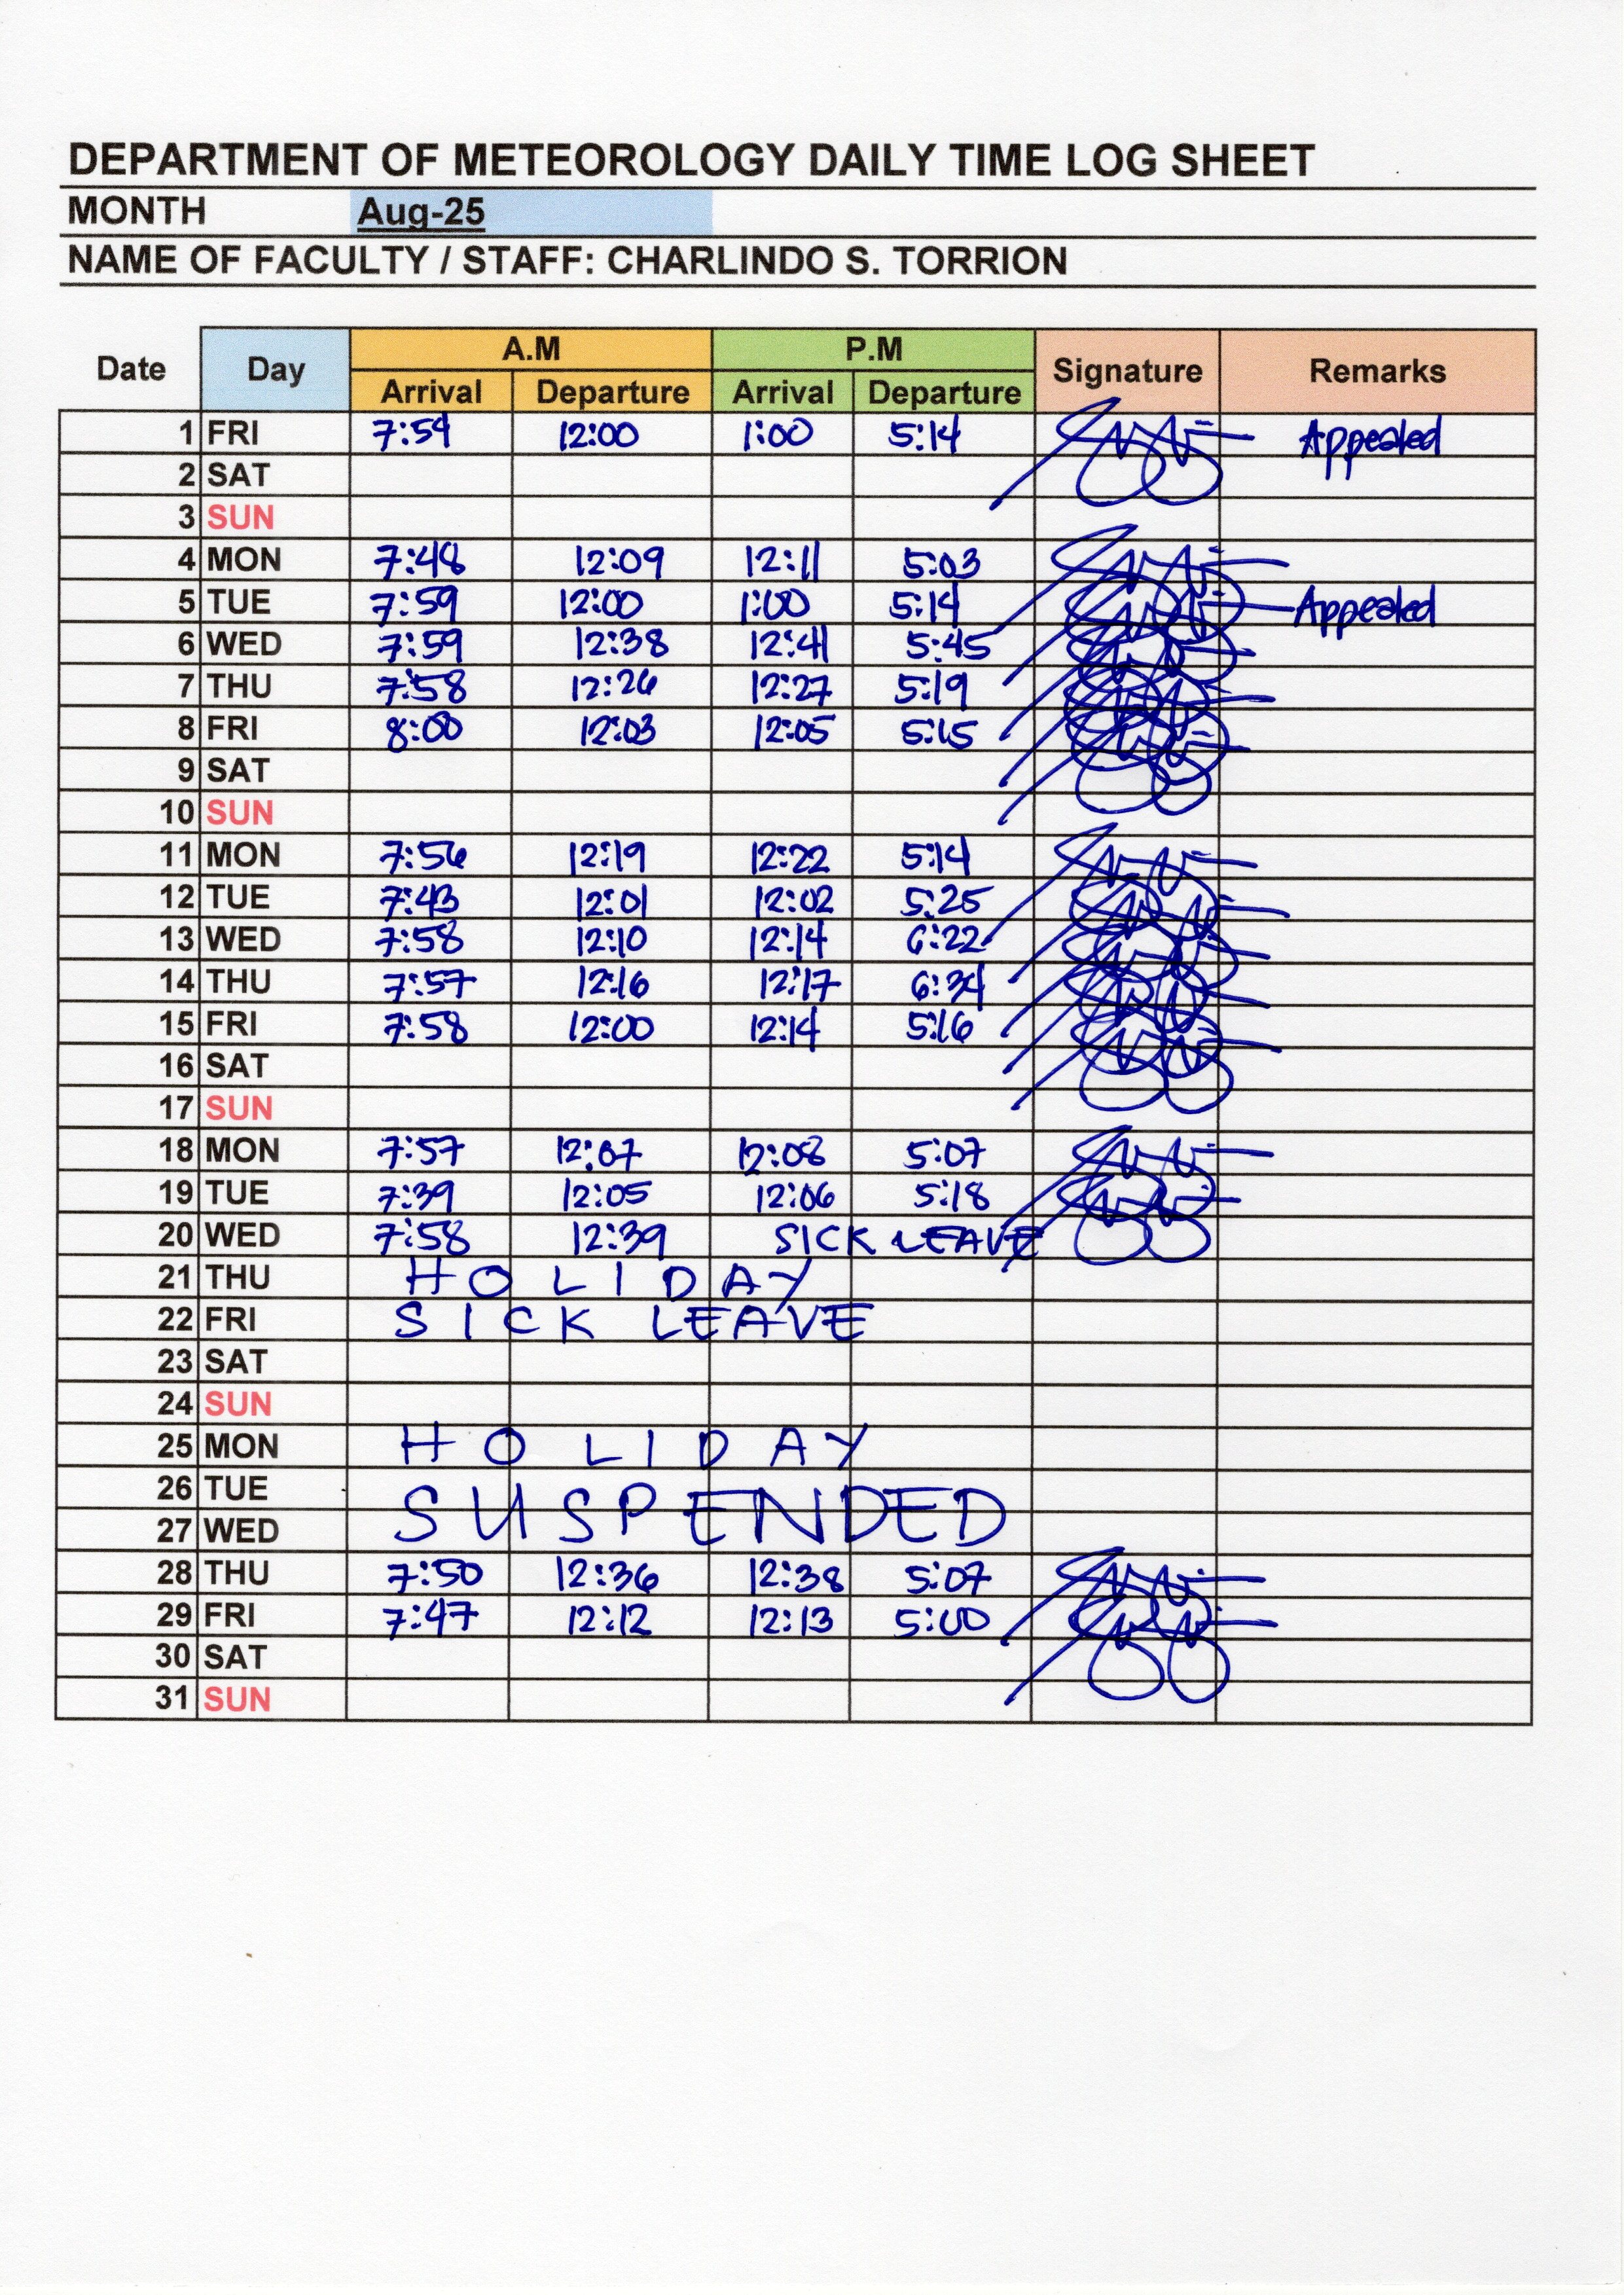 DEPARTMENT OF METEOROLOGY DAILY TIME LOG SHEET
MONTH Aug-25
NAME OF FACULTY / STAFF: CHARLINDO S. TORRION
Date Day A.M P.M Signature Remarks
Arrival Departure Arrival Departure
1 FRI 7:59 12:00 1:00 5:14 Appealed
2 SAT
3 SUN
4 MON 7:48 12:09 12:11 5:03
5 TUE 7:59 12:00 1:00 5:14 Appealed
6 WED 7:59 12:38 12:41 5:45
7 THU 7:58 12:26 12:27 5:19
8 FRI 8:00 12:03 12:05 5:15
9 SAT
10 SUN
11 MON 7:56 12:19 12:22 5:14
12 TUE 7:43 12:01 12:02 5:25
13 WED 7:58 12:10 12:14 6:22
14 THU 7:57 12:16 12:17 6:34
15 FRI 7:58 12:00 12:14 5:16
16 SAT
17 SUN
18 MON 7:57 12:07 12:08 5:07
19 TUE 7:39 12:05 12:06 5:18
20 WED 7:58 12:39 SICK LEAVE
21 THU HOLIDAY
22 FRI SICK LEAVE
23 SAT
24 SUN
25 MON HOLIDAY
26 TUE SUSPENDED
27 WED
28 THU 7:50 12:36 12:38 5:07
29 FRI 7:47 12:12 12:13 5:00
30 SAT
31 SUN